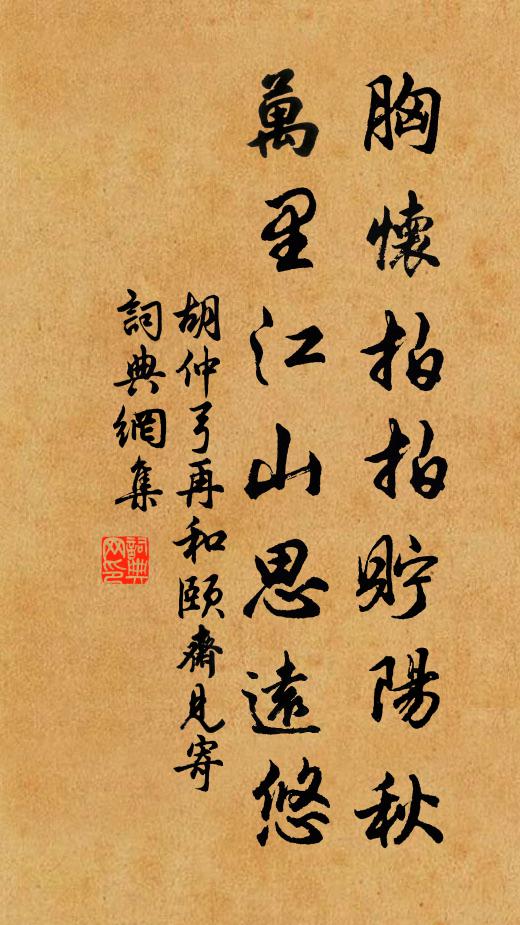 胸懷拍拍貯陽秋
萬里江山思遠悠
胡仲弓再和頤齋見寄
詞典網集
詞典网印